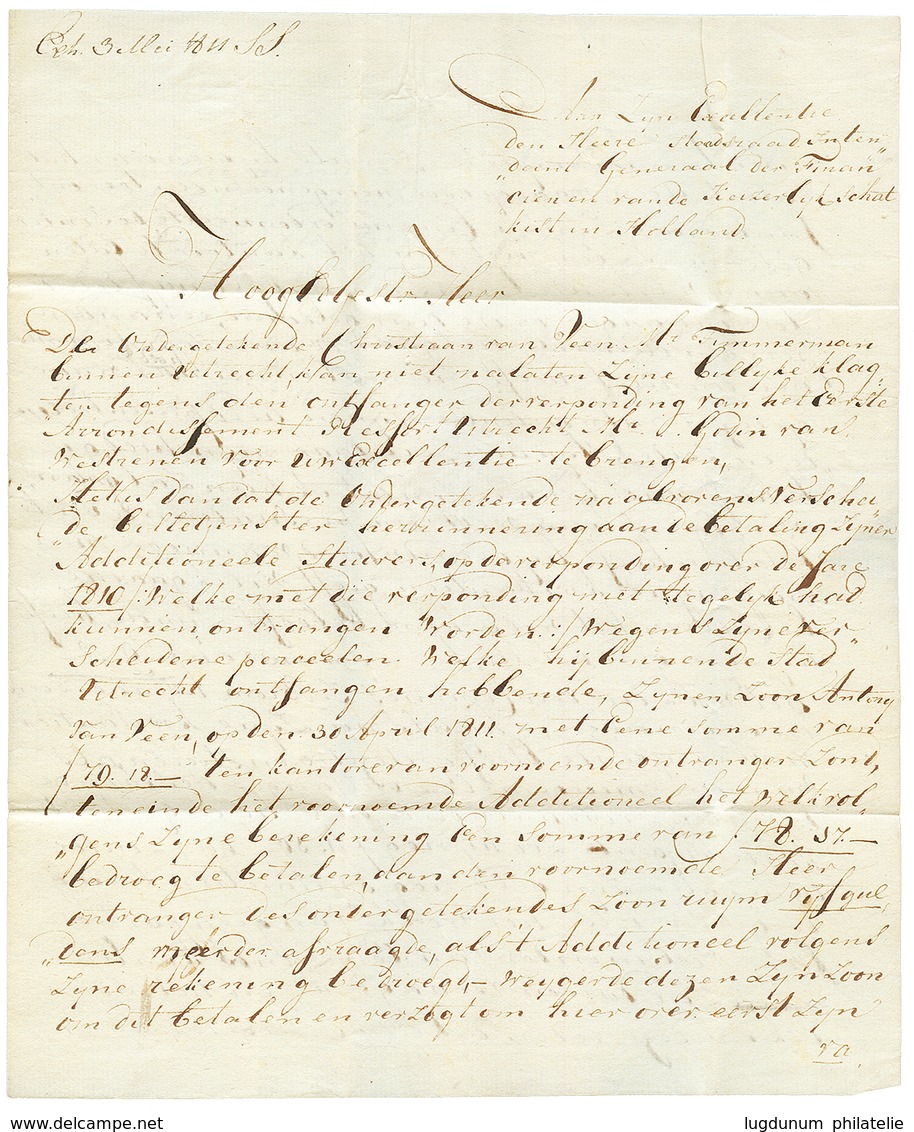 Exh. 3 Mei 1811 SS.
Aan Zyn Excellentie
den Heere Staadsraad Inten„
„dant Generaal der Finan„
cien en van de Keizerlyk Schat
kist in Holland
HoogEdlgestr. Heer
De Ondergetekende Christiaan van Veen Mr. Timmerman
binnen Utrecht, kan niet nalaten Zyne billyke klag„
ten tegens den ontfanger der verponding van het Eerste
Arrondissement Ressort Utrecht Mr. J. Godin van
Westrenen voor uw Excellentie te brengen,
Het is dan dat de Ondergetekende na alvorens verschei„
„de billetjens ter herinnering aan de betaling Zyner
Additioneele Stuivers, op de verponding over de Jare
1810 /: Welke met die verponding niet tegelyk had
kunnen ontvangen worden :/ wegens Zyne ver„
scheidene perceelen. Welke hij binnen de Stad
Utrecht ontfangen hebbende, Zynen Zoon Antony
van Veen, op den 30 April 1811. met Eene somme van
ƒ79. 18.— ten kantore van voornoemde ontvanger Zont,
ten einde het voornoemde Additioneel het welk vol„
„gens Zyne berekening Een somme van ƒ78. 57.—
bedroeg te betalen, aan den voornoemde Heer
ontvanger des ondergetekendes Zoon ruym vyf gul„
„dens meerder afvraagde, als 't Additioneel volgens
Zyne rekening bedroegt,— weygerde dezen Zyn Zoon
om dit betalen en verzogt om hier over eerst Zyn
va
lugdunum philatelie